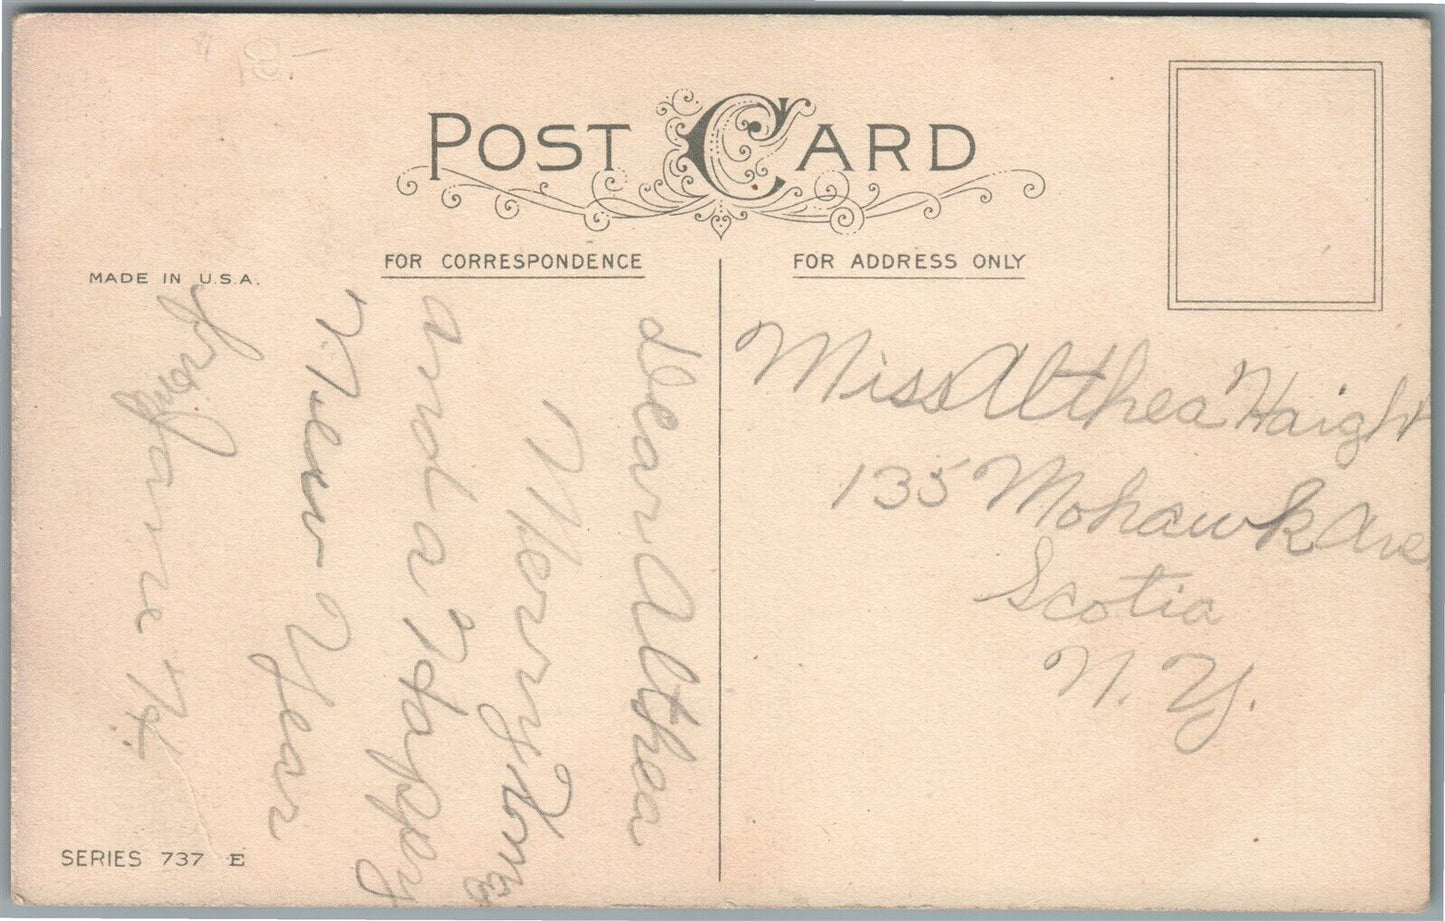 POST CARD
FOR CORRESPONDENCE
FOR ADDRESS ONLY
MADE IN U.S.A.
Dear Althea
Merry Xmas
and a Happy
New Year
from
Jane H.
Miss Althea Haight
135 Mohawk Ave
Scotia
N. Y.
SERIES 737 E